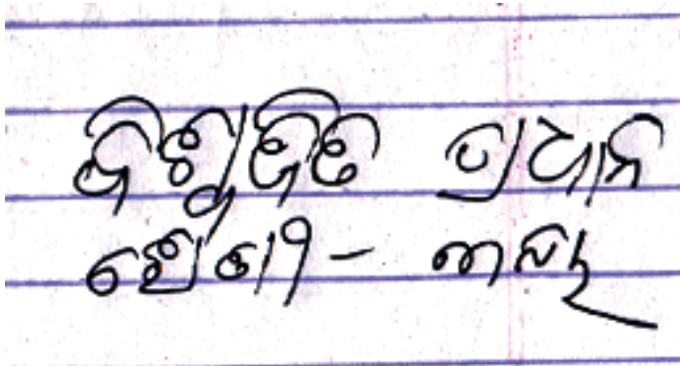 ବିଶ୍ୱଜିତ ପ୍ରଧାନ
ଶ୍ରେଣୀ - ନବମ